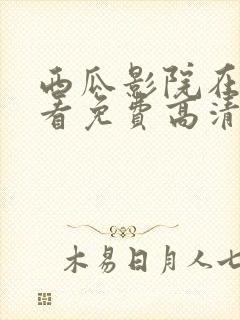 西瓜影院在
看免费高清
木易日月人七